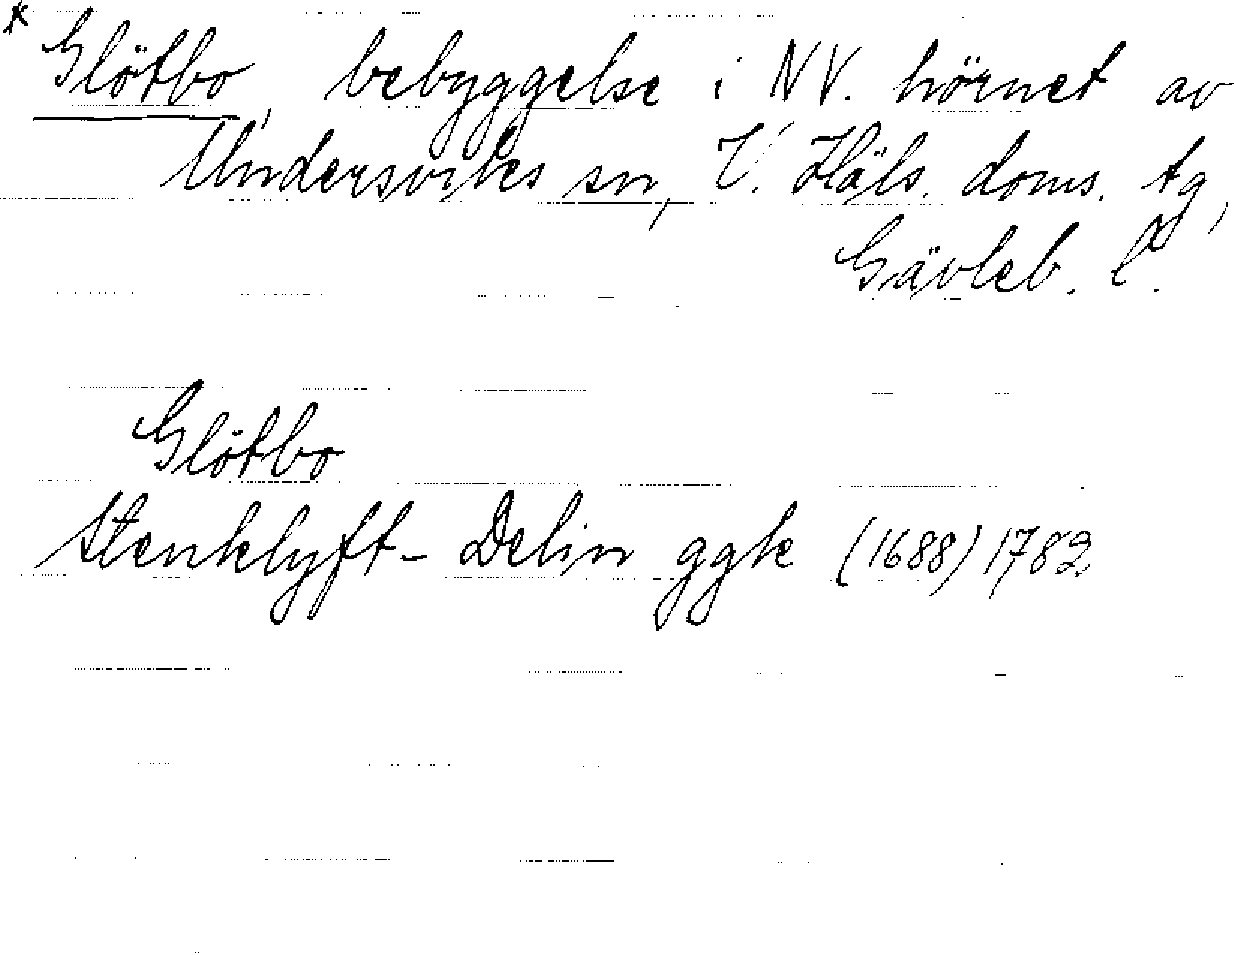 * Glötbo, bebyggelse i NV. hörnet av
Undersviks sn, V. Häls. doms. tg,
Gävleb. l.
Glötbo
Stenklyft- Delin ggk (1688) 1782